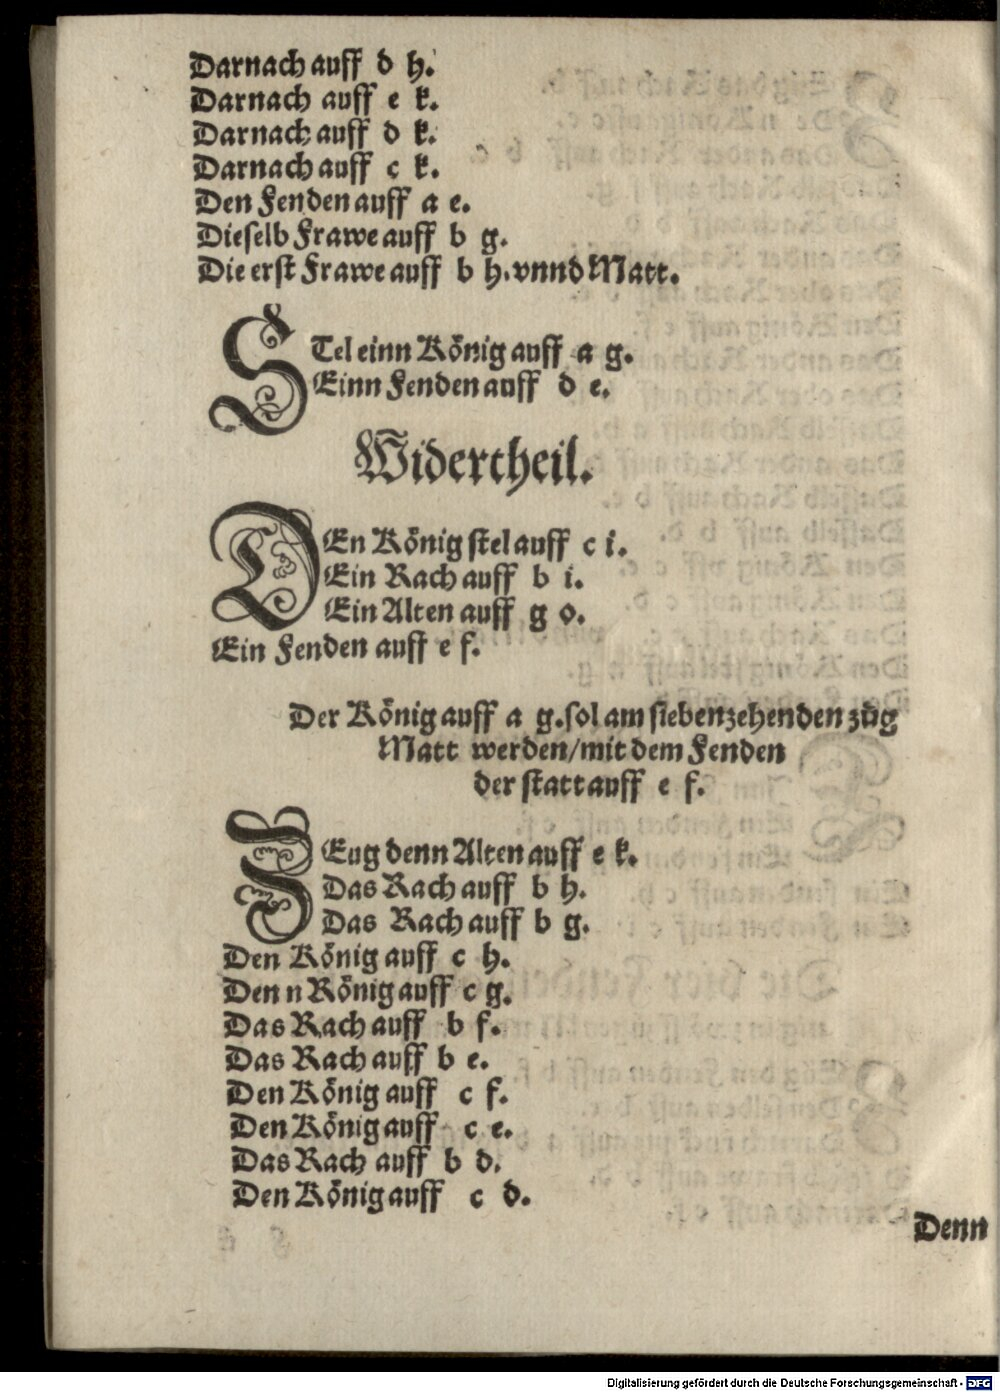 Darnach auff d h.
Darnach auff e k.
Darnach auff d k.
Darnach auff c k.
Den Fenden auff a e.
Dieselb Frawe auff b g.
Die erst Frawe auff b h. vnnd Matt.
STel einn König auff a g.
Einn Fenden auff d e.
Widertheil.
DEn König stel auff c i.
Ein Rach auff b i.
Ein Alten auff g o.
Ein Fenden auff e f.
Der König auff a g. sol am siebenzehenden zůg
Matt werden/mit dem Fenden
der statt auff e f.
ZEug denn Alten auff e k.
Das Rach auff b h.
Das Rach auff b g.
Den König auff c h.
Den n König auff c g.
Das Rach auff b f.
Das Rach auff b e.
Den König auff c f.
Den König auff c e.
Das Rach auff b d.
Den König auff c d.
Denn
Digitalisierung gefördert durch die Deutsche Forschungsgemeinschaft - DFG